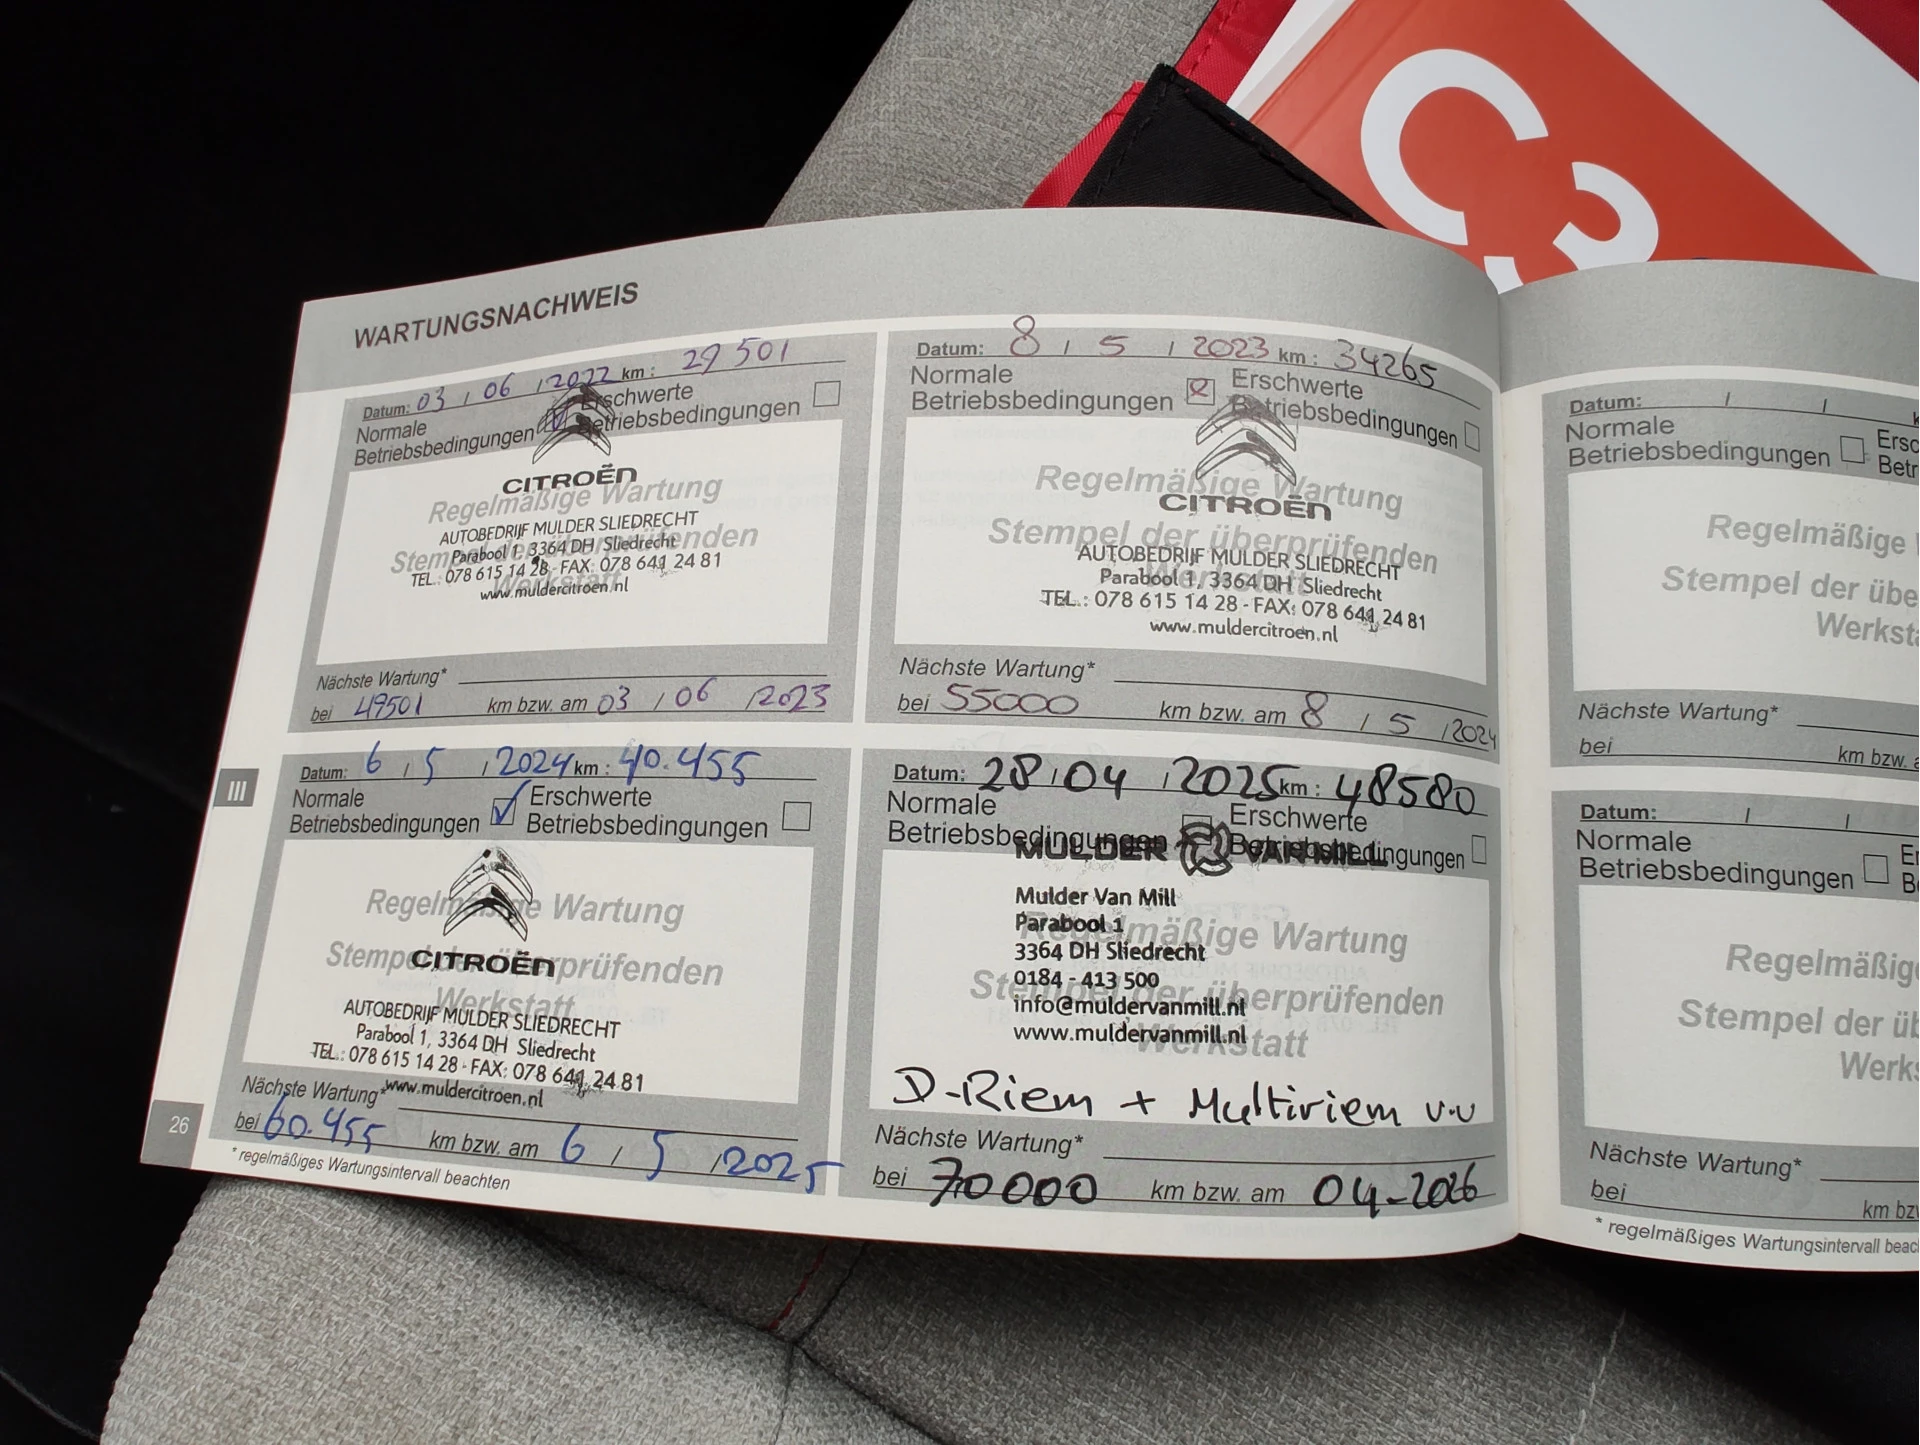 C3
WARTUNGSNACHWEIS
Datum: 03 / 06 / 2022 km: 29 501
Normale
Betriebsbedingungen
Erschwerte
Betriebsbedingungen
CITROËN
Regelmäßige Wartung
Stempel der überprüfenden
Werkstatt
AUTOBEDRIJF MULDER SLIEDRECHT
Parabool 1, 3364 DH Sliedrecht
TEL.: 078 615 14 28 - FAX: 078 641 24 81
www.muldercitroen.nl
Nächste Wartung*
bei 49501 km bzw. am 03 / 06 / 2023
Datum: 8 / 5 / 2023 km: 34265
Normale
Betriebsbedingungen
Erschwerte
Betriebsbedingungen
Regelmäßige Wartung
CITROËN
Stempel der überprüfenden
Werkstatt
AUTOBEDRIJF MULDER SLIEDRECHT
Parabool 1, 3364 DH Sliedrecht
TEL.: 078 615 14 28 - FAX: 078 641 24 81
www.muldercitroen.nl
Nächste Wartung*
bei 55000 km bzw. am 8 / 5 / 2024
III
Datum: 6 / 5 / 2024 km: 40.455
Normale
Betriebsbedingungen
Erschwerte
Betriebsbedingungen
Regelmäßige Wartung
Stempel der überprüfenden
CITROËN
Werkstatt
AUTOBEDRIJF MULDER SLIEDRECHT
Parabool 1, 3364 DH Sliedrecht
TEL.: 078 615 14 28 - FAX: 078 641 24 81
www.muldercitroen.nl
Nächste Wartung*
bei 60.455 km bzw. am 6 / 5 / 2025
Datum: 28 / 04 / 2025 km: 48580
Normale
Betriebsbedingungen
Erschwerte
Betriebsbedingungen
MULDER VAN MILL
Mulder Van Mill
Parabool 1
3364 DH Sliedrecht
0184 - 413 500
info@muldervanmill.nl
www.muldervanmill.nl
Regelmäßige Wartung
Stempel der überprüfenden
Werkstatt
D-Riem + Multiriem v.v
Nächste Wartung*
bei 70000 km bzw. am 04-2026
26
* regelmäßiges Wartungsintervall beachten
Datum: / /
Normale
Betriebsbedingungen
Regelmäßige
Stempel der
Nächste Wartung*
bei km bzw.
Datum: / /
Normale
Betriebsbedingungen
Stempel der
Nächste Wartung*
bei
* regelmäßiges Wartungsintervall